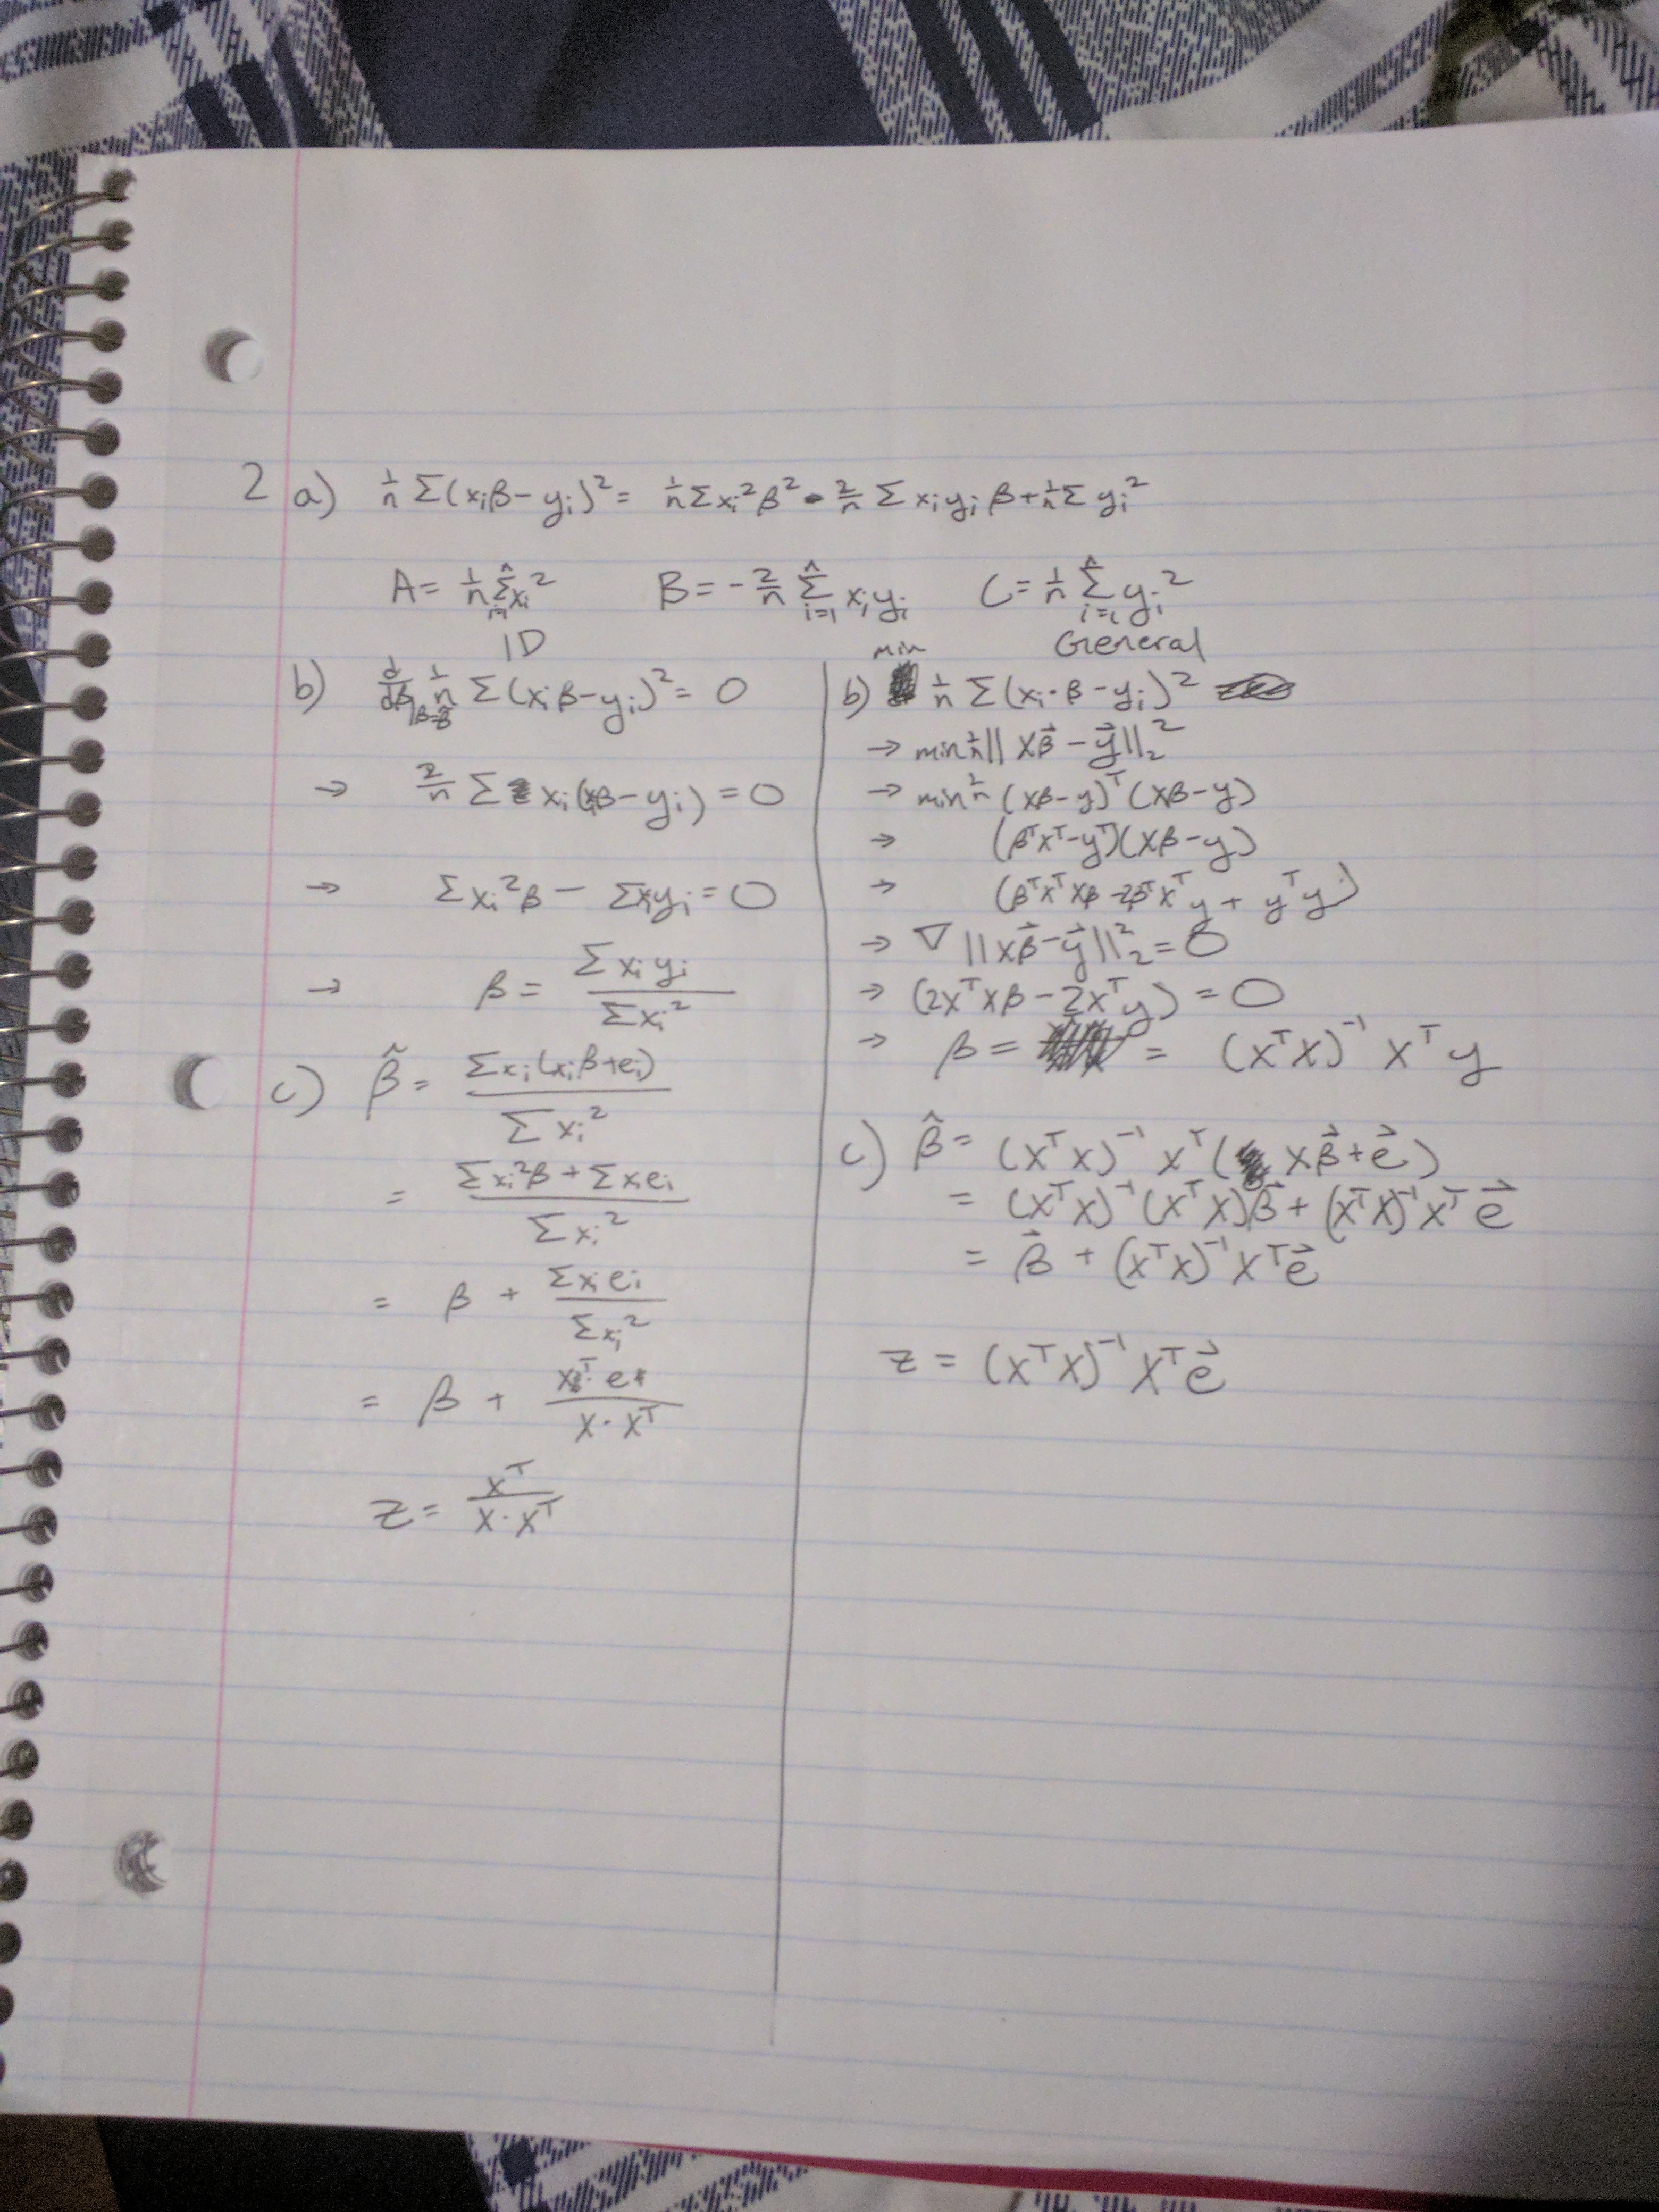 2 a) 1/n Σ(xᵢβ-yᵢ)² = 1/n Σxᵢ²β² - 2/n Σ xᵢyᵢ β + 1/n Σ yᵢ²
A = 1/n Σⁿᵢ₌₁ xᵢ² B = -2/n Σⁿᵢ₌₁ xᵢyᵢ C = 1/n Σⁿᵢ₌₁ yᵢ²
1D
b) d/dβ|β=β̂ 1/n Σ(xᵢβ-yᵢ)² = 0
→ 2/n Σ xᵢ(xᵢβ-yᵢ) = 0
→ Σxᵢ²β - Σxᵢyᵢ = 0
→ β = Σxᵢyᵢ / Σxᵢ²
c) β̂ = Σxᵢ(xᵢβ+eᵢ) / Σxᵢ²
= (Σxᵢ²β + Σxᵢeᵢ) / Σxᵢ²
= β + Σxᵢeᵢ / Σxᵢ²
= β + xᵀ·e / x·xᵀ
z = xᵀ / x·xᵀ
General
b) min 1/n Σ(xᵢ·β-yᵢ)²
→ min 1/n ||Xβ⃗ - y⃗||₂²
→ min 2/n (Xβ-y)ᵀ(Xβ-y)
→ (βᵀXᵀ-yᵀ)(Xβ-y)
→ (βᵀXᵀXβ - 2βᵀXᵀy + yᵀy)
→ ∇ ||Xβ⃗-y⃗||₂² = 0
→ (2XᵀXβ - 2Xᵀy) = 0
→ β = = (XᵀX)⁻¹ Xᵀy
c) β̂ = (XᵀX)⁻¹ Xᵀ( Xβ⃗+e⃗)
= (XᵀX)⁻¹(XᵀX)β⃗ + (XᵀX)⁻¹Xᵀe⃗
= β⃗ + (XᵀX)⁻¹Xᵀe⃗
z = (XᵀX)⁻¹Xᵀe⃗